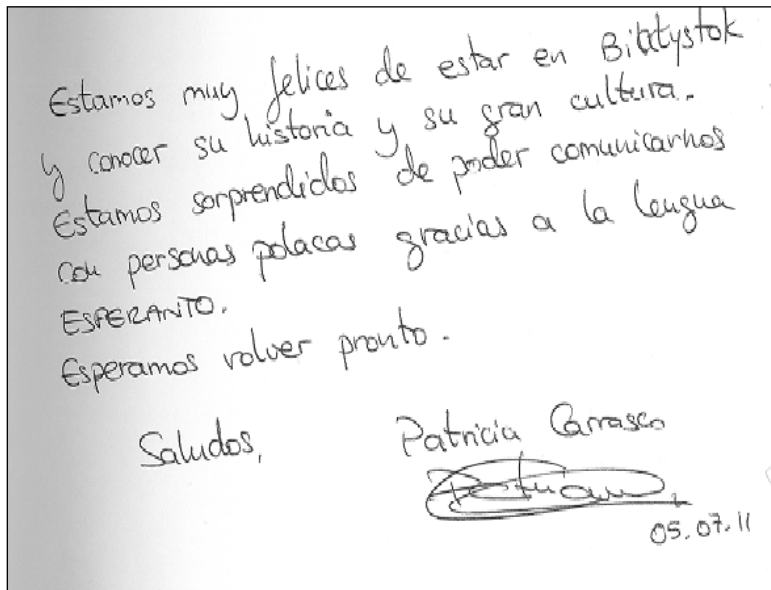 Estamos muy felices de estar en Bialtystok
y conocer su historia y su gran cultura.
Estamos sorprendidos de poder comunicarnos
con personas polacas gracias a la lengua
ESPERANTO.
Esperamos volver pronto.
Saludos, Patricia Carrasco
05.07.11